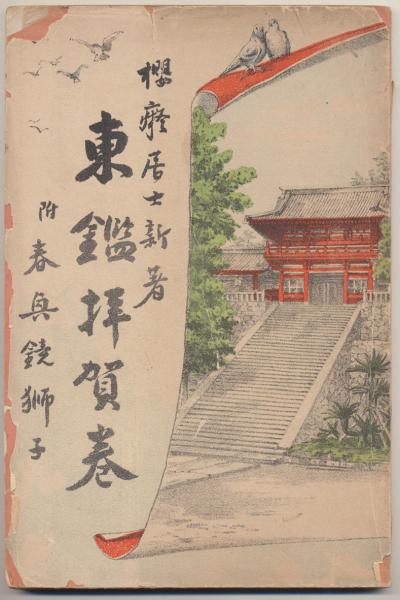 櫻癡居士新著
東鑑拜賀卷
附 春興鏡獅子